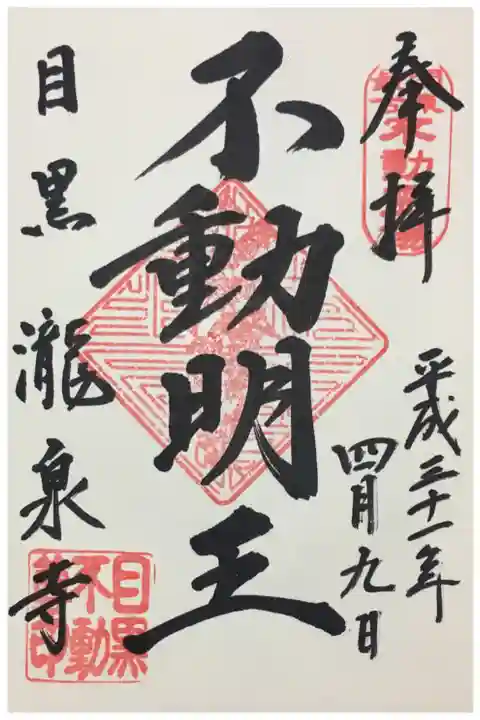 奉拝
平成三十一年
四月九日
不動明王
目黒瀧泉寺
目黒
不動